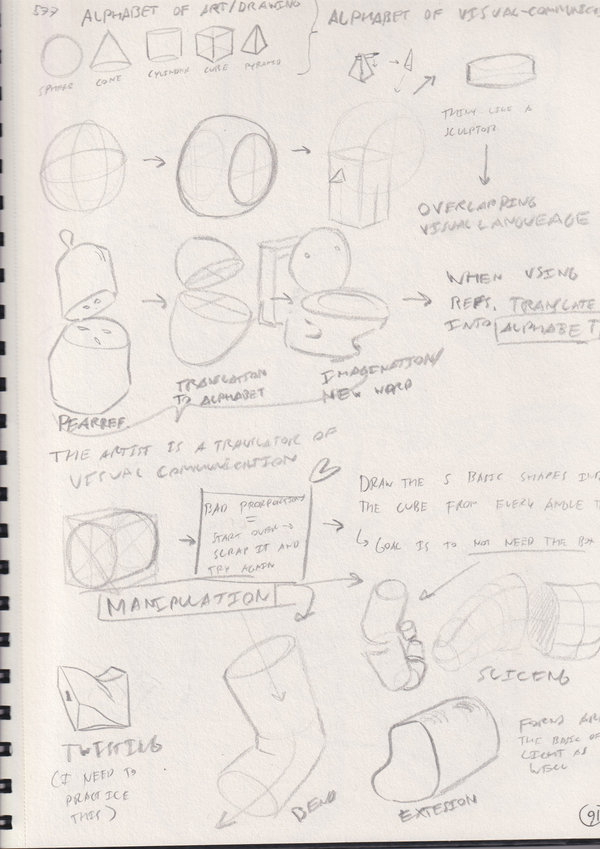 577 ALPHABET OF ART/DRAWING
ALPHABET OF VISUAL-COMMUNICA
SPHERE
CONE
CYLINDER
CUBE
PYRAMID
THINK LIKE A
SCULPTOR
OVERLAPPING
VISUAL LANGUEAGE
WHEN USING
REFS. TRANSLATE
INTO ALPHABET
PEAR REF.
TRANSLATION
TO ALPHABET
IMAGINATION/
NEW WORD
THE ARTIST IS A TRANSLATOR OF
VISUAL COMMUNICATION
BAD PROPORTIONS
=
START OVER →
SCRAP IT AND
TRY AGAIN
DRAW THE 5 BASIC SHAPES
THE CUBE FROM EVERY ANGLE
↳ GOAL IS TO NOT NEED THE BOX
MANIPULATION
SLICEING
TWISTING
(I NEED TO
PRACTICE
THIS)
BEND
EXTESION
FORMS
THE BASIC OF
LIGHT AS
WELL
91